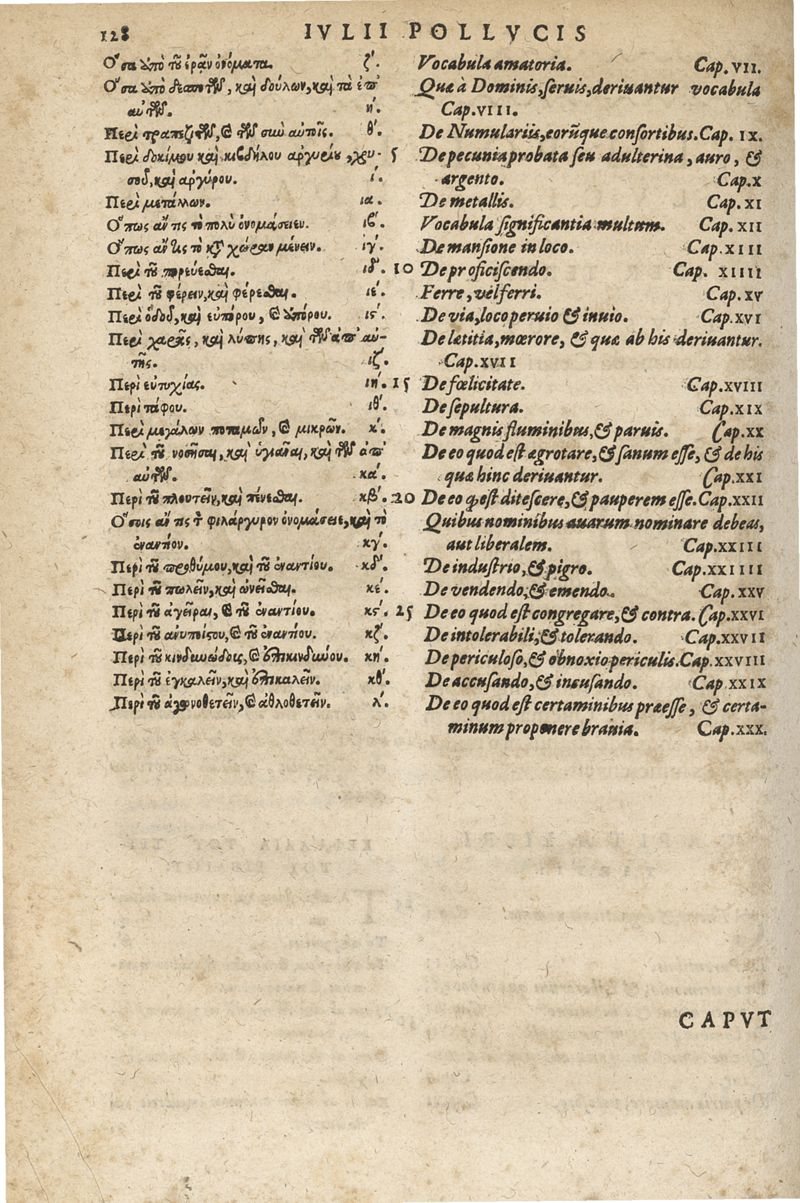 128 IVLII POLLVCIS
Ὅσα ὑπὸ τοῦ ἐρᾶν ὀνόματα. ζ΄.
Ὅσα ὑπὸ δεσποτῶν, καὶ δούλων, καὶ τὰ ἐπ'
αὐτῶν. η΄.
Περὶ τραπεζιτῶν, & τῶν σὺν αὐτοῖς. θ΄.
Περὶ δοκίμου καὶ κιβδήλου ἀργυρίου, χρυ- 5
σοῦ, καὶ ἀργύρου. ι΄.
Περὶ μετάλλων. ια΄.
Ὅπως ἄν τις τὸ πολὺ ὀνομάσειεν. ιβ΄.
Ὅπως ἄν τις τὸ κτ' χώραν μένειν. ιγ΄.
Περὶ τοῦ πορεύεσθαι. ιδ΄. 10
Περὶ τοῦ φέρειν, καὶ φέρεσθαι. ιε΄.
Περὶ ὁδοῦ, καὶ εὐπόρου, & ἀπόρου. ις΄.
Περὶ χαρᾶς, καὶ λύπης, καὶ τῶν ἀπ' αὐ-
τῆς. ιζ΄.
Περὶ εὐτυχίας. ιη΄. 15
Περὶ τάφου. ιθ΄.
Περὶ μεγάλων ποταμῶν, & μικρῶν. κ΄.
Περὶ τοῦ νοσῆσαι, καὶ ὑγιᾶναι, καὶ τῶν ἀπ'
αὐτῶν. κα΄.
Περὶ τοῦ πλουτεῖν, καὶ πένεσθαι. κβ΄. 20
Ὅστις ἄν τις τ' φιλάργυρον ὀνομάσειε, καὶ τὸ
ἐναντίον. κγ΄.
Περὶ τοῦ προθύμου, καὶ τοῦ ἐναντίου. κδ΄.
Περὶ τοῦ πωλεῖν, καὶ ὠνεῖσθαι. κε΄.
Περὶ τοῦ ἀγεῖραι, & τοῦ ἐναντίου. κς΄. 25
Περὶ τοῦ ἀνυποίστου, & τοῦ ἐναντίου. κζ΄.
Περὶ τοῦ κινδυνώδους, & ἐπικινδύνου. κη΄.
Περὶ τοῦ ἐγκαλεῖν, καὶ ἐπικαλεῖν. κθ΄.
Περὶ τοῦ ἀγωνοθετεῖν, & ἀθλοθετεῖν. λ΄.
Vocabula amatoria. Cap. VII.
Quæ à Dominis, seruis, deriuantur vocabula
Cap. VIII.
De Numulariis, eorũque consortibus. Cap. IX.
De pecunia probata seu adulterina, auro, &
argento. Cap. X
De metallis. Cap. XI
Vocabula significantia multum. Cap. XII
De mansione in loco. Cap. XIII
De proficiscendo. Cap. XIIII
Ferre, vel ferri. Cap. XV
De via, loco peruio & inuio. Cap. XVI
De lætitia, mœrore, & quæ ab his deriuantur.
Cap. XVII
De fœlicitate. Cap. XVIII
De sepultura. Cap. XIX
De magnis fluminibus, & paruis. Cap. XX
De eo quod est ægrotare, & sanum esse, & de his
quæ hinc deriuantur. Cap. XXI
De eo ꝙ est ditescere, & pauperem esse. Cap. XXII
Quibus nominibus auarum nominare debeas,
aut liberalem. Cap. XXIII
De industrio, & pigro. Cap. XXIIII
De vendendo, & emendo. Cap. XXV
De eo quod est congregare, & contra. Cap. XXVI
De intolerabili, & tolerando. Cap. XXVII
De periculoso, & obnoxio periculis. Cap. XXVIII
De accusando, & incusando. Cap XXIX
De eo quod est certaminibus præesse, & certa-
minum proponere brauia. Cap. XXX.
CAPVT